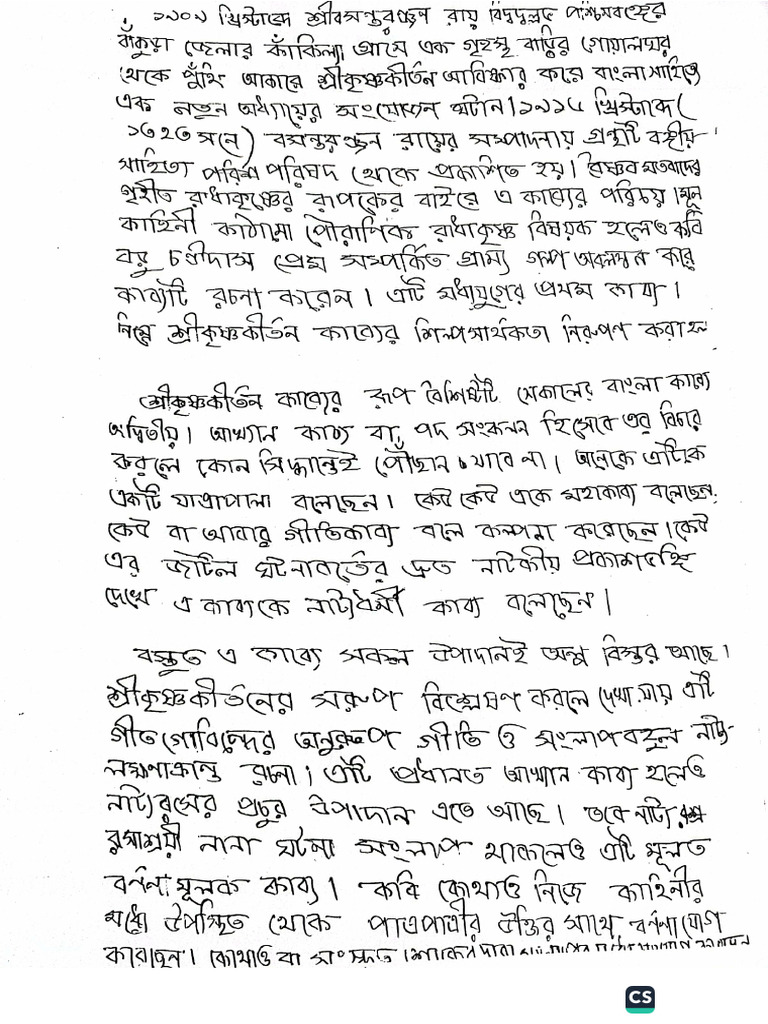 ১৯০৯ খ্রিস্টাব্দে শ্রীবসন্তরঞ্জন রায় বিদ্বদ্বল্লভ পশ্চিমবঙ্গের
বাঁকুড়া জেলার কাঁকিল্যা গ্রামে এক গৃহস্থ বাড়ির গোয়ালঘর
থেকে পুঁথি আকারে শ্রীকৃষ্ণকীর্তন আবিষ্কার করে বাংলা সাহিত্যে
এক নতুন অধ্যায়ের সংযোজন ঘটান। ১৯১৬ খ্রিস্টাব্দে (
১৩২৩ সনে) বসন্তরঞ্জন রায়ের সম্পাদনায় গ্রন্থটি বঙ্গীয়
সাহিত্য পরিষদ থেকে প্রকাশিত হয়। বৈষ্ণব মতবাদের
গৃহীত রাধাকৃষ্ণের রূপকের বাইরে এ কাব্যের পরিচয়। মূল
কাহিনী কাঠামো পৌরাণিক রাধাকৃষ্ণ বিষয়ক হলেও কবি
বড়ু চণ্ডীদাস প্রেম সম্পর্কিত গ্রাম্য গল্প অবলম্বন করে
কাব্যটি রচনা করেন। এটি মধ্যযুগের প্রথম কাব্য।
নিম্নে শ্রীকৃষ্ণকীর্তন কাব্যের শিল্পসার্থকতা নিরুপণ করা হল
শ্রীকৃষ্ণকীর্তন কাব্যের রূপ বৈশিষ্ট্যটি সেকালের বাংলা কাব্যে
অদ্বিতীয়। আখ্যান কাব্য বা পদ সংকলন হিসেবে এর বিচার
করলে কোন সিদ্ধান্তেই পৌঁছান যাবে না। অনেকে এটিকে
একটি যাত্রাপালা বলেছেন। কেউ কেউ একে মহাকাব্য বলেছেন,
কেউ বা আবার গীতিকাব্য বলে কল্পনা করেছেন। কেউ
এর জটিল ঘটনাবর্তের দ্রুত নাটকীয় প্রকাশভঙ্গি
দেখে এ কাব্যকে নাট্যধর্মী কাব্য বলেছেন।
বস্তুত এ কাব্যে সকল উপাদানই অল্প বিস্তর আছে।
শ্রীকৃষ্ণকীর্তনের স্বরুপ বিশ্লেষণ করলে দেখা যায় এটি
গীতগোবিন্দের অনুরুপ গীতি ও সংলাপবহুল নাট্য-
লক্ষণাক্রান্ত রচনা। এটি প্রধানত আখ্যান কাব্য হলেও
নাট্যরসের প্রচুর উপাদান এতে আছে। তবে নাট্য
রসাশ্রয়ী নানা ঘটনা সংলাপ থাকলেও এটি মূলত
বর্ণনা মূলক কাব্য। কবি কোথাও নিজে কাহিনীর
মধ্যে উপস্থিত থেকে পাত্রপাত্রীর উক্তির সাথে বর্ণনা যোগ
করেছেন। কোথাও বা সংস্কৃত শ্লোকের দ্বারা
CS